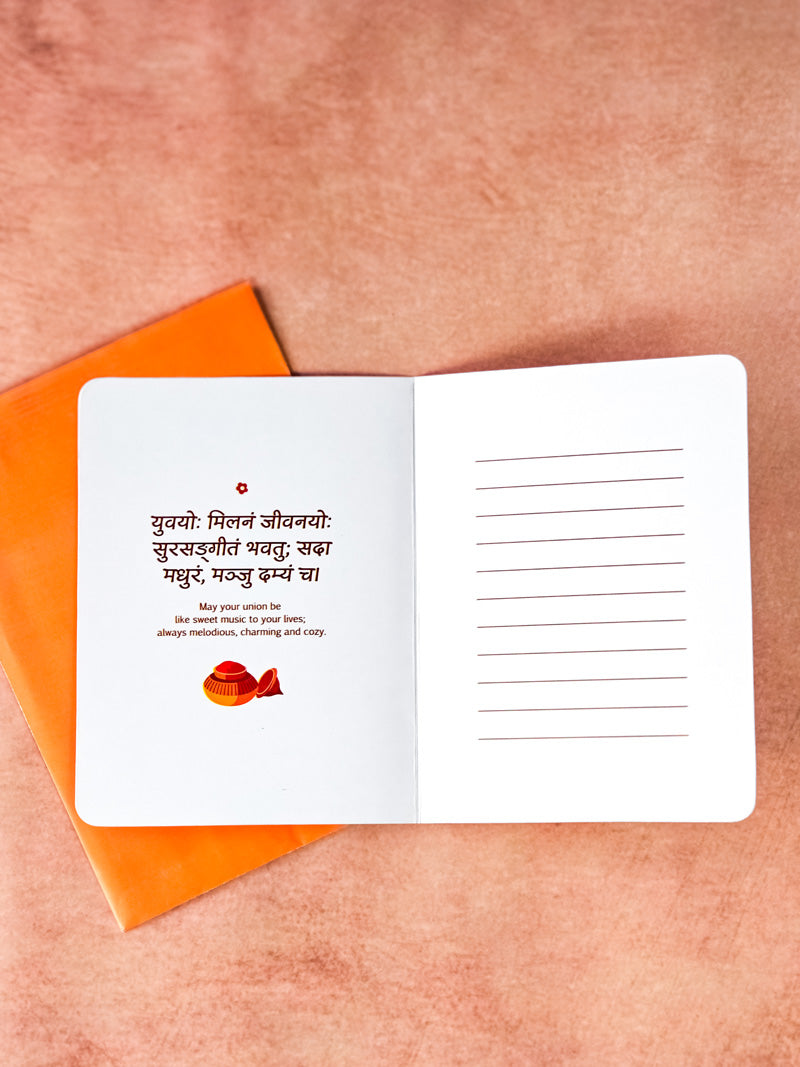 युवयोः मिलनं जीवनयोः
सुरसङ्गीतं भवतु; सदा
मधुरं, मञ्जु ढम्यं च।
May your union be
like sweet music to your lives;
always melodious, charming and cozy.